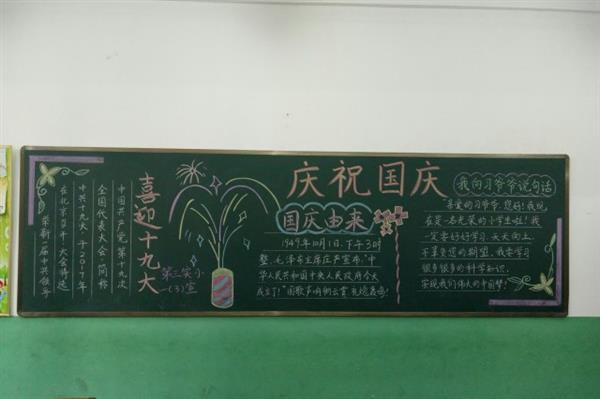 喜迎十九大
中国共产党第十九次
全国代表大会(简称
中共十九大)于2017年
在北京召开
大会将选
举新一届中共领导
第三实小
一(3)宣
庆祝国庆
国庆由来
1949年10月1日,下午3时
整,毛泽东主席庄严宣布:“中
华人民共和国中央人民政府今天
成立了!”国歌声响彻云霄,礼炮轰鸣!
我向习爷爷说句话
“亲爱的习爷爷,您好!我现
在是一名光荣的小学生啦!我
一定要好好学习,天天向上,
不辜负您的期望,我要学习
很多很多的科学知识,
实现我们伟大的中国梦!”